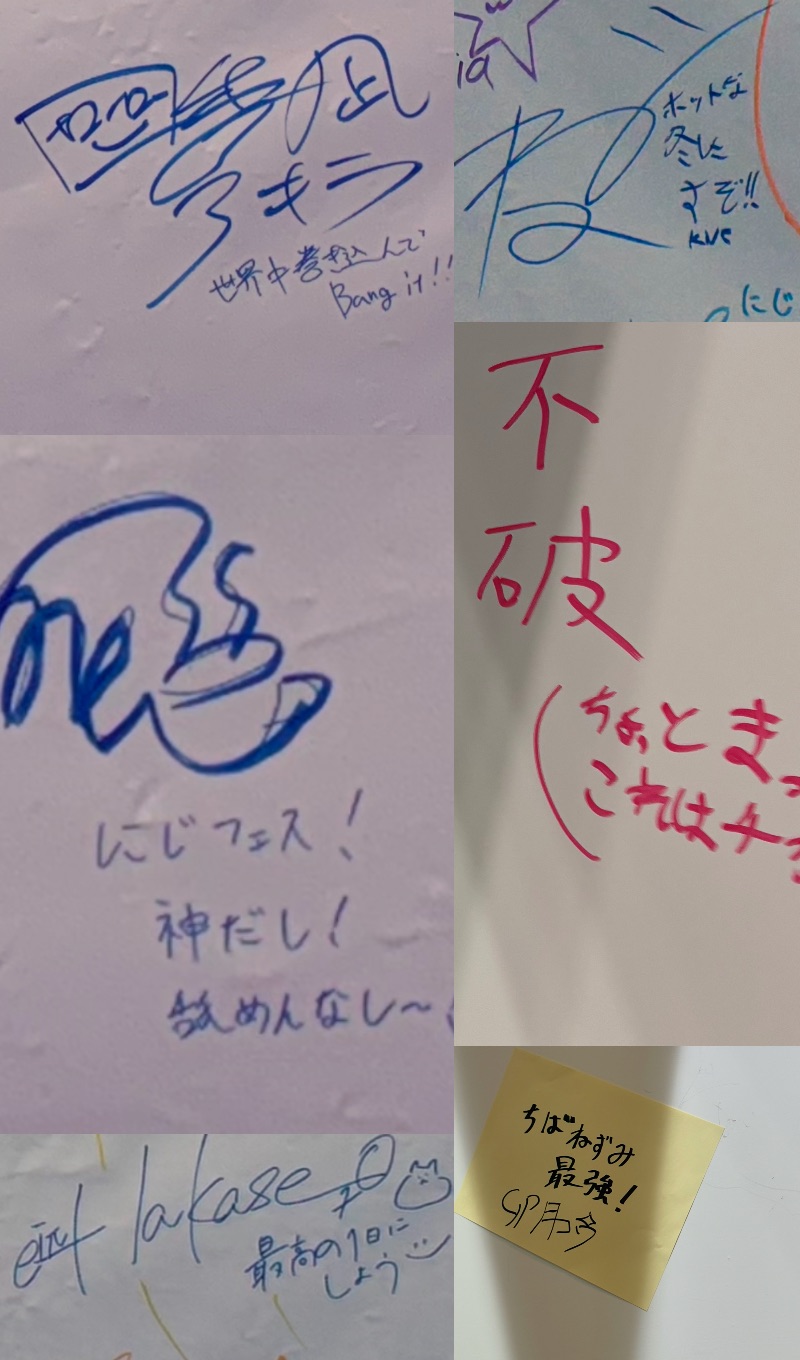 四季凪
アキラ
世界中巻き込んで
Bang it!!
ia
ホットな
冬にし
すぞ!!
KVE
にじ
不
破
(ちょっとまっ
これはチ
にじフェス!
神だし!
舐めんなし〜
takase
最高の1日に
しよう
ちばねずみ
最強!
卯月コウ